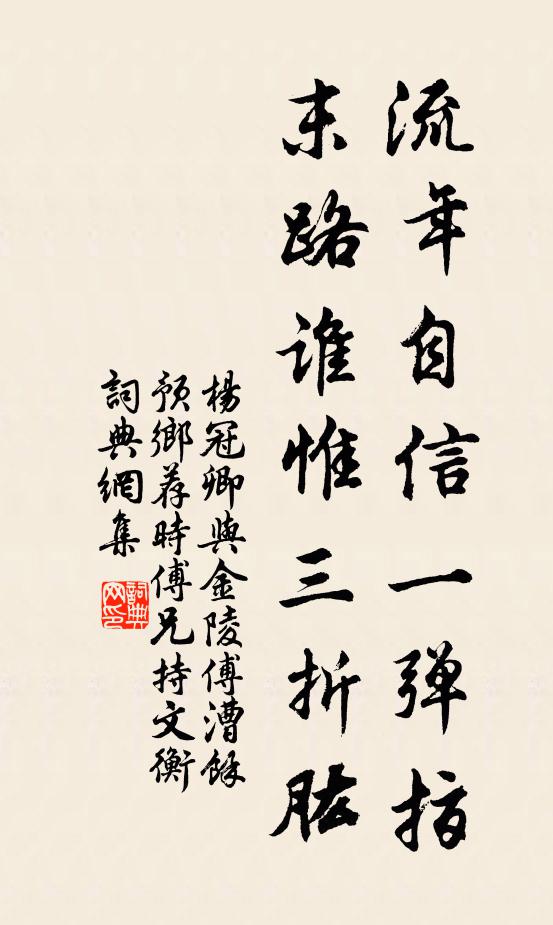 流年自信一弹指
末路谁惟三折肱
楊冠卿與金陵傅漕餘
預鄉荐時傅兄持文衡
詞典網集
詞典网印